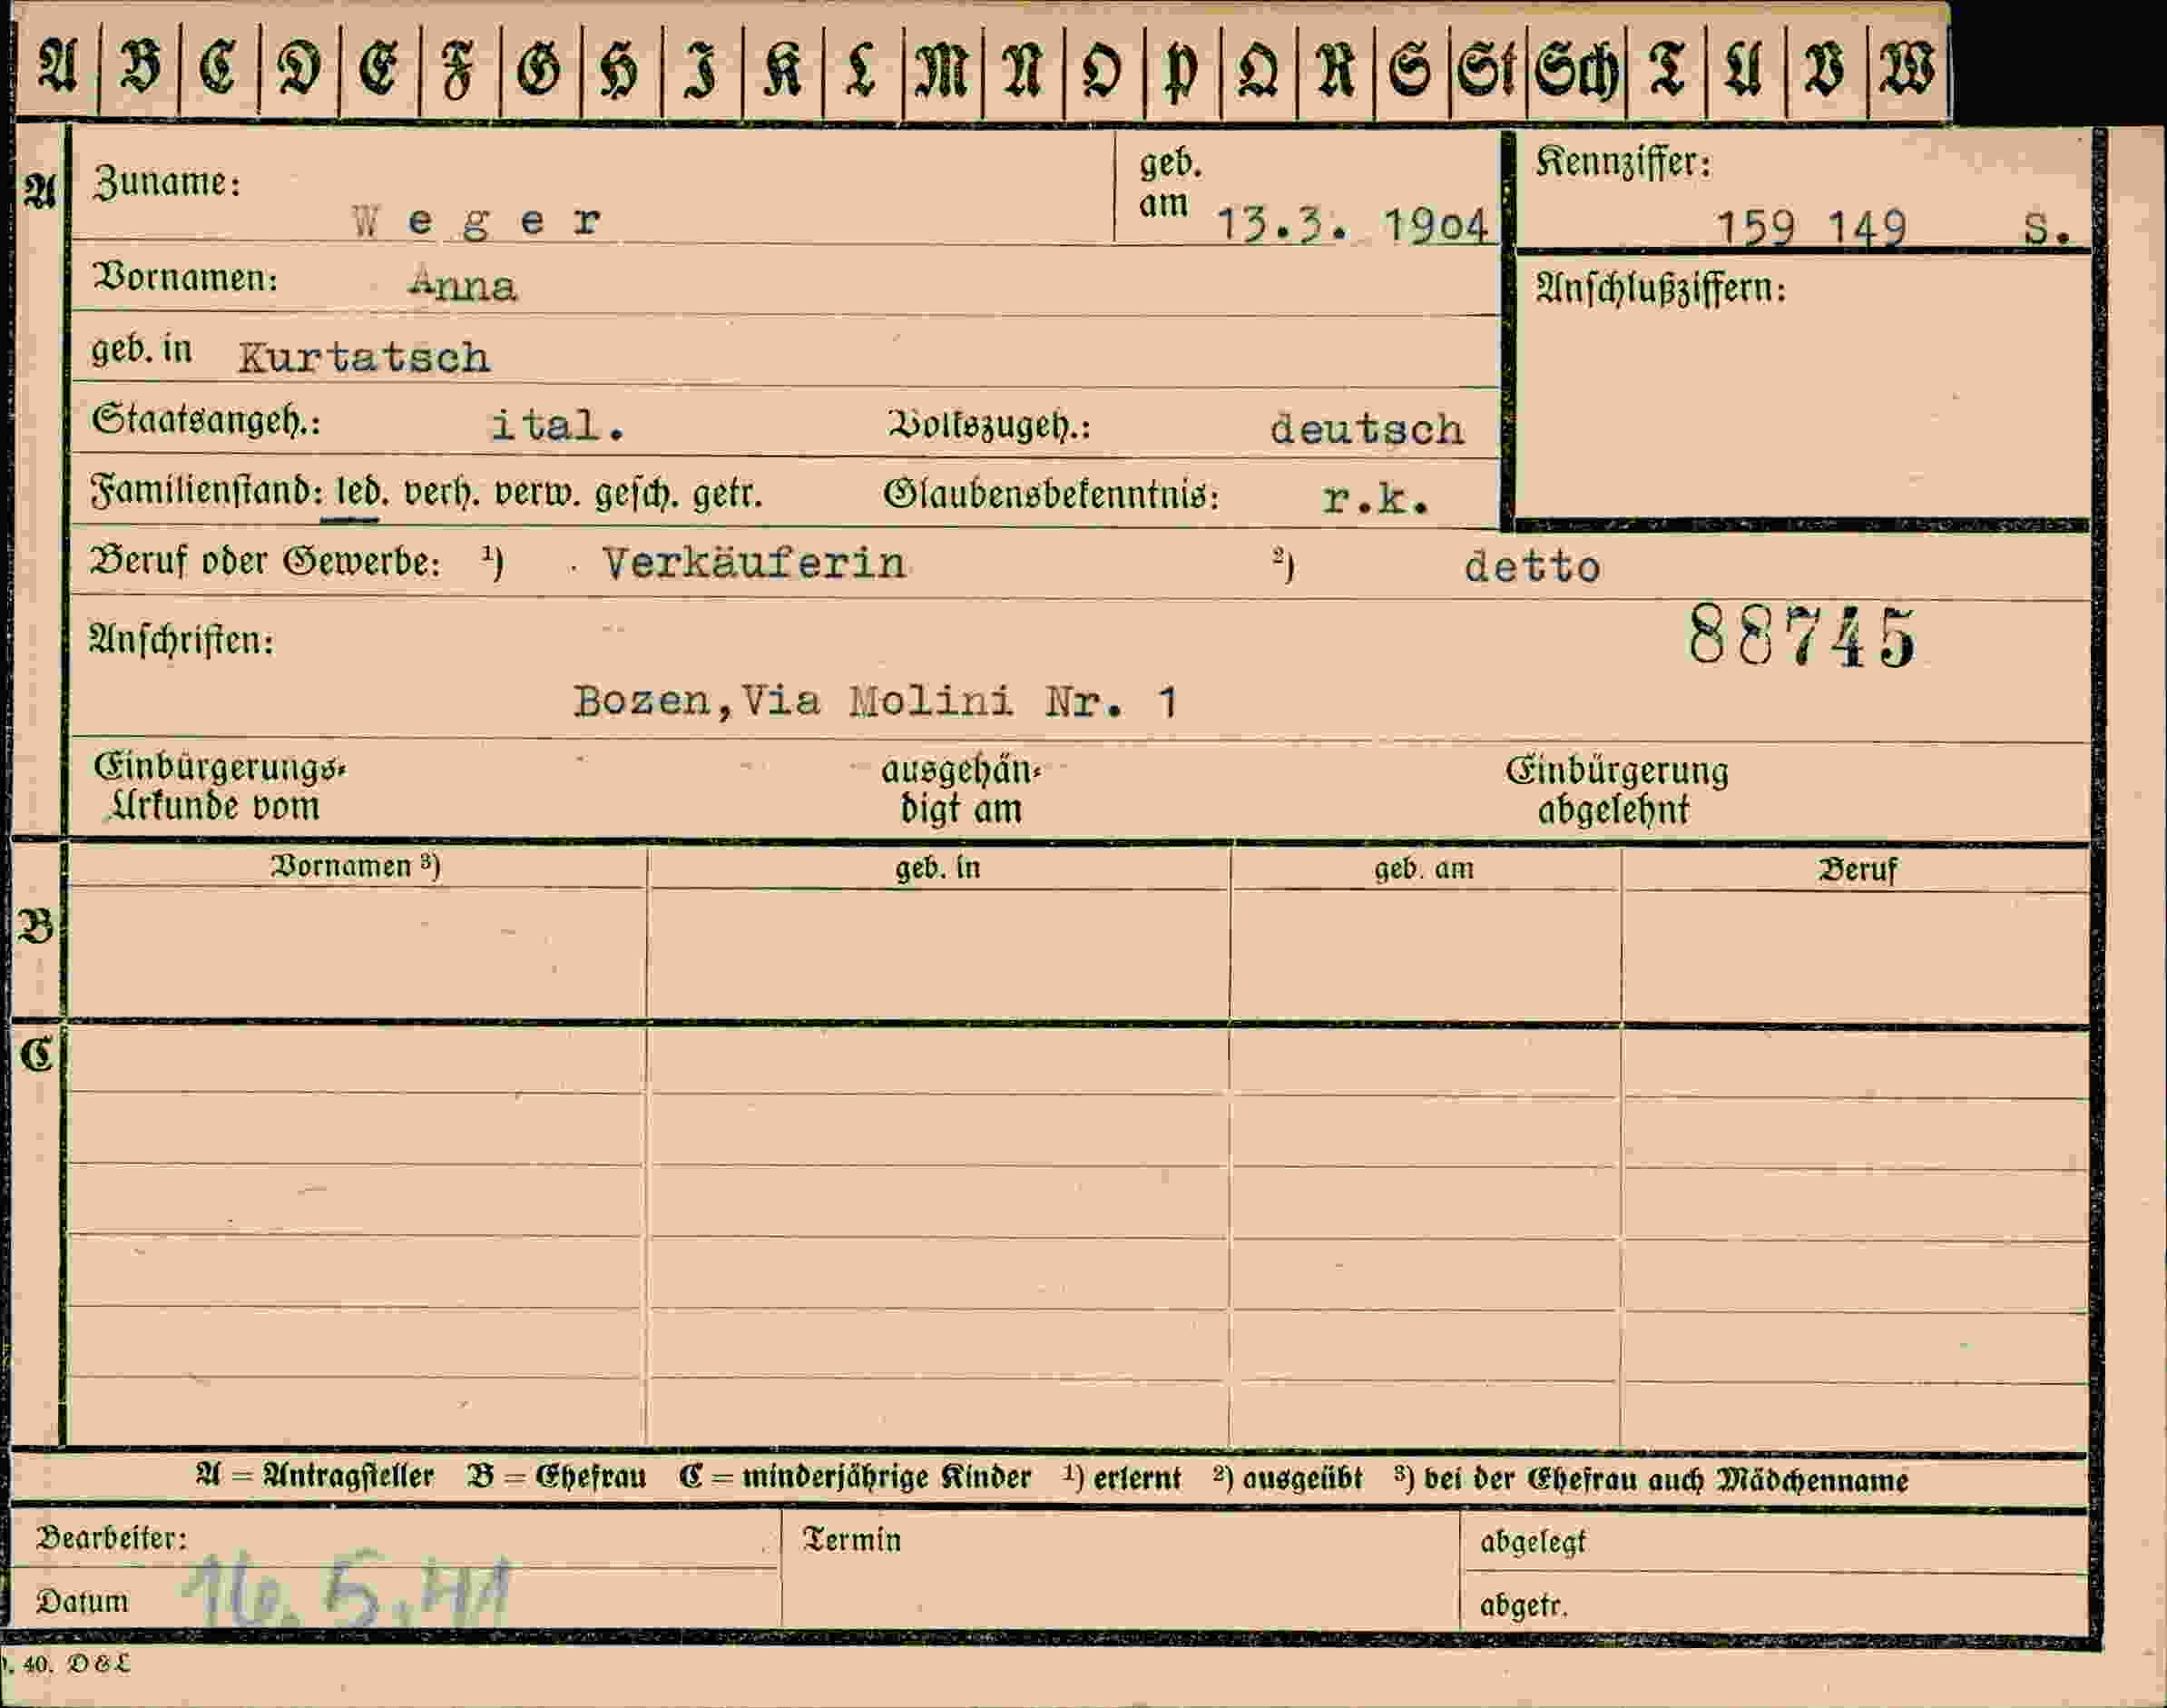 A B C D E F G H I K L M N O P Q R S St Sch T U V W
A Zuname: Weger geb. am 13.3. 1904 Kennziffer: 159 149 S.
Vornamen: Anna Anschlußziffern:
geb. in Kurtatsch
Staatsangeh.: ital. Volkszugeh.: deutsch
Familienstand: led. verh. verw. gesch. getr. Glaubensbekenntnis: r.k.
Beruf oder Gewerbe: ¹) Verkäuferin ²) detto
Anschriften: 88745
Bozen, Via Molini Nr. 1
Einbürgerungs- ausgehän- Einbürgerung
Urkunde vom digt am abgelehnt
Vornamen ³) geb. in geb. am Beruf
B
C
A = Antragsteller B = Ehefrau C = minderjährige Kinder ¹) erlernt ²) ausgeübt ³) bei der Ehefrau auch Mädchenname
Bearbeiter: Termin abgelegt
Datum 16.5.41 abgetr.
40. D & L